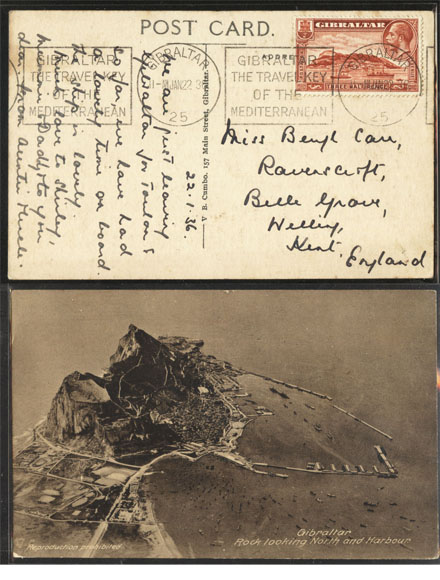 POST CARD.
GIBRALTAR
GIBRALTAR
THE TRAVEL KEY
OF THE
MEDITERRANEAN
GIBRALTAR
JAN 22
25
GIBRALTAR
THE TRAVEL KEY
OF THE
MEDITERRANEAN
GIBRALTAR
THREE HALFPENCE
25
22.1.36.
We are just leaving
Gibraltar for Toulon &
so far we have had
a lovely time on board
the ship is lovely
love to Shirley,
Mummy Daddy & you
dear, from Auntie
V. B. Cumbo. 157 Main Street, Gibraltar.
Miss Beryl Carr,
Ravenscroft,
Belle Grove,
Welling,
Kent,
England
Gibraltar
Rock looking North and Harbour
Reproduction prohibited